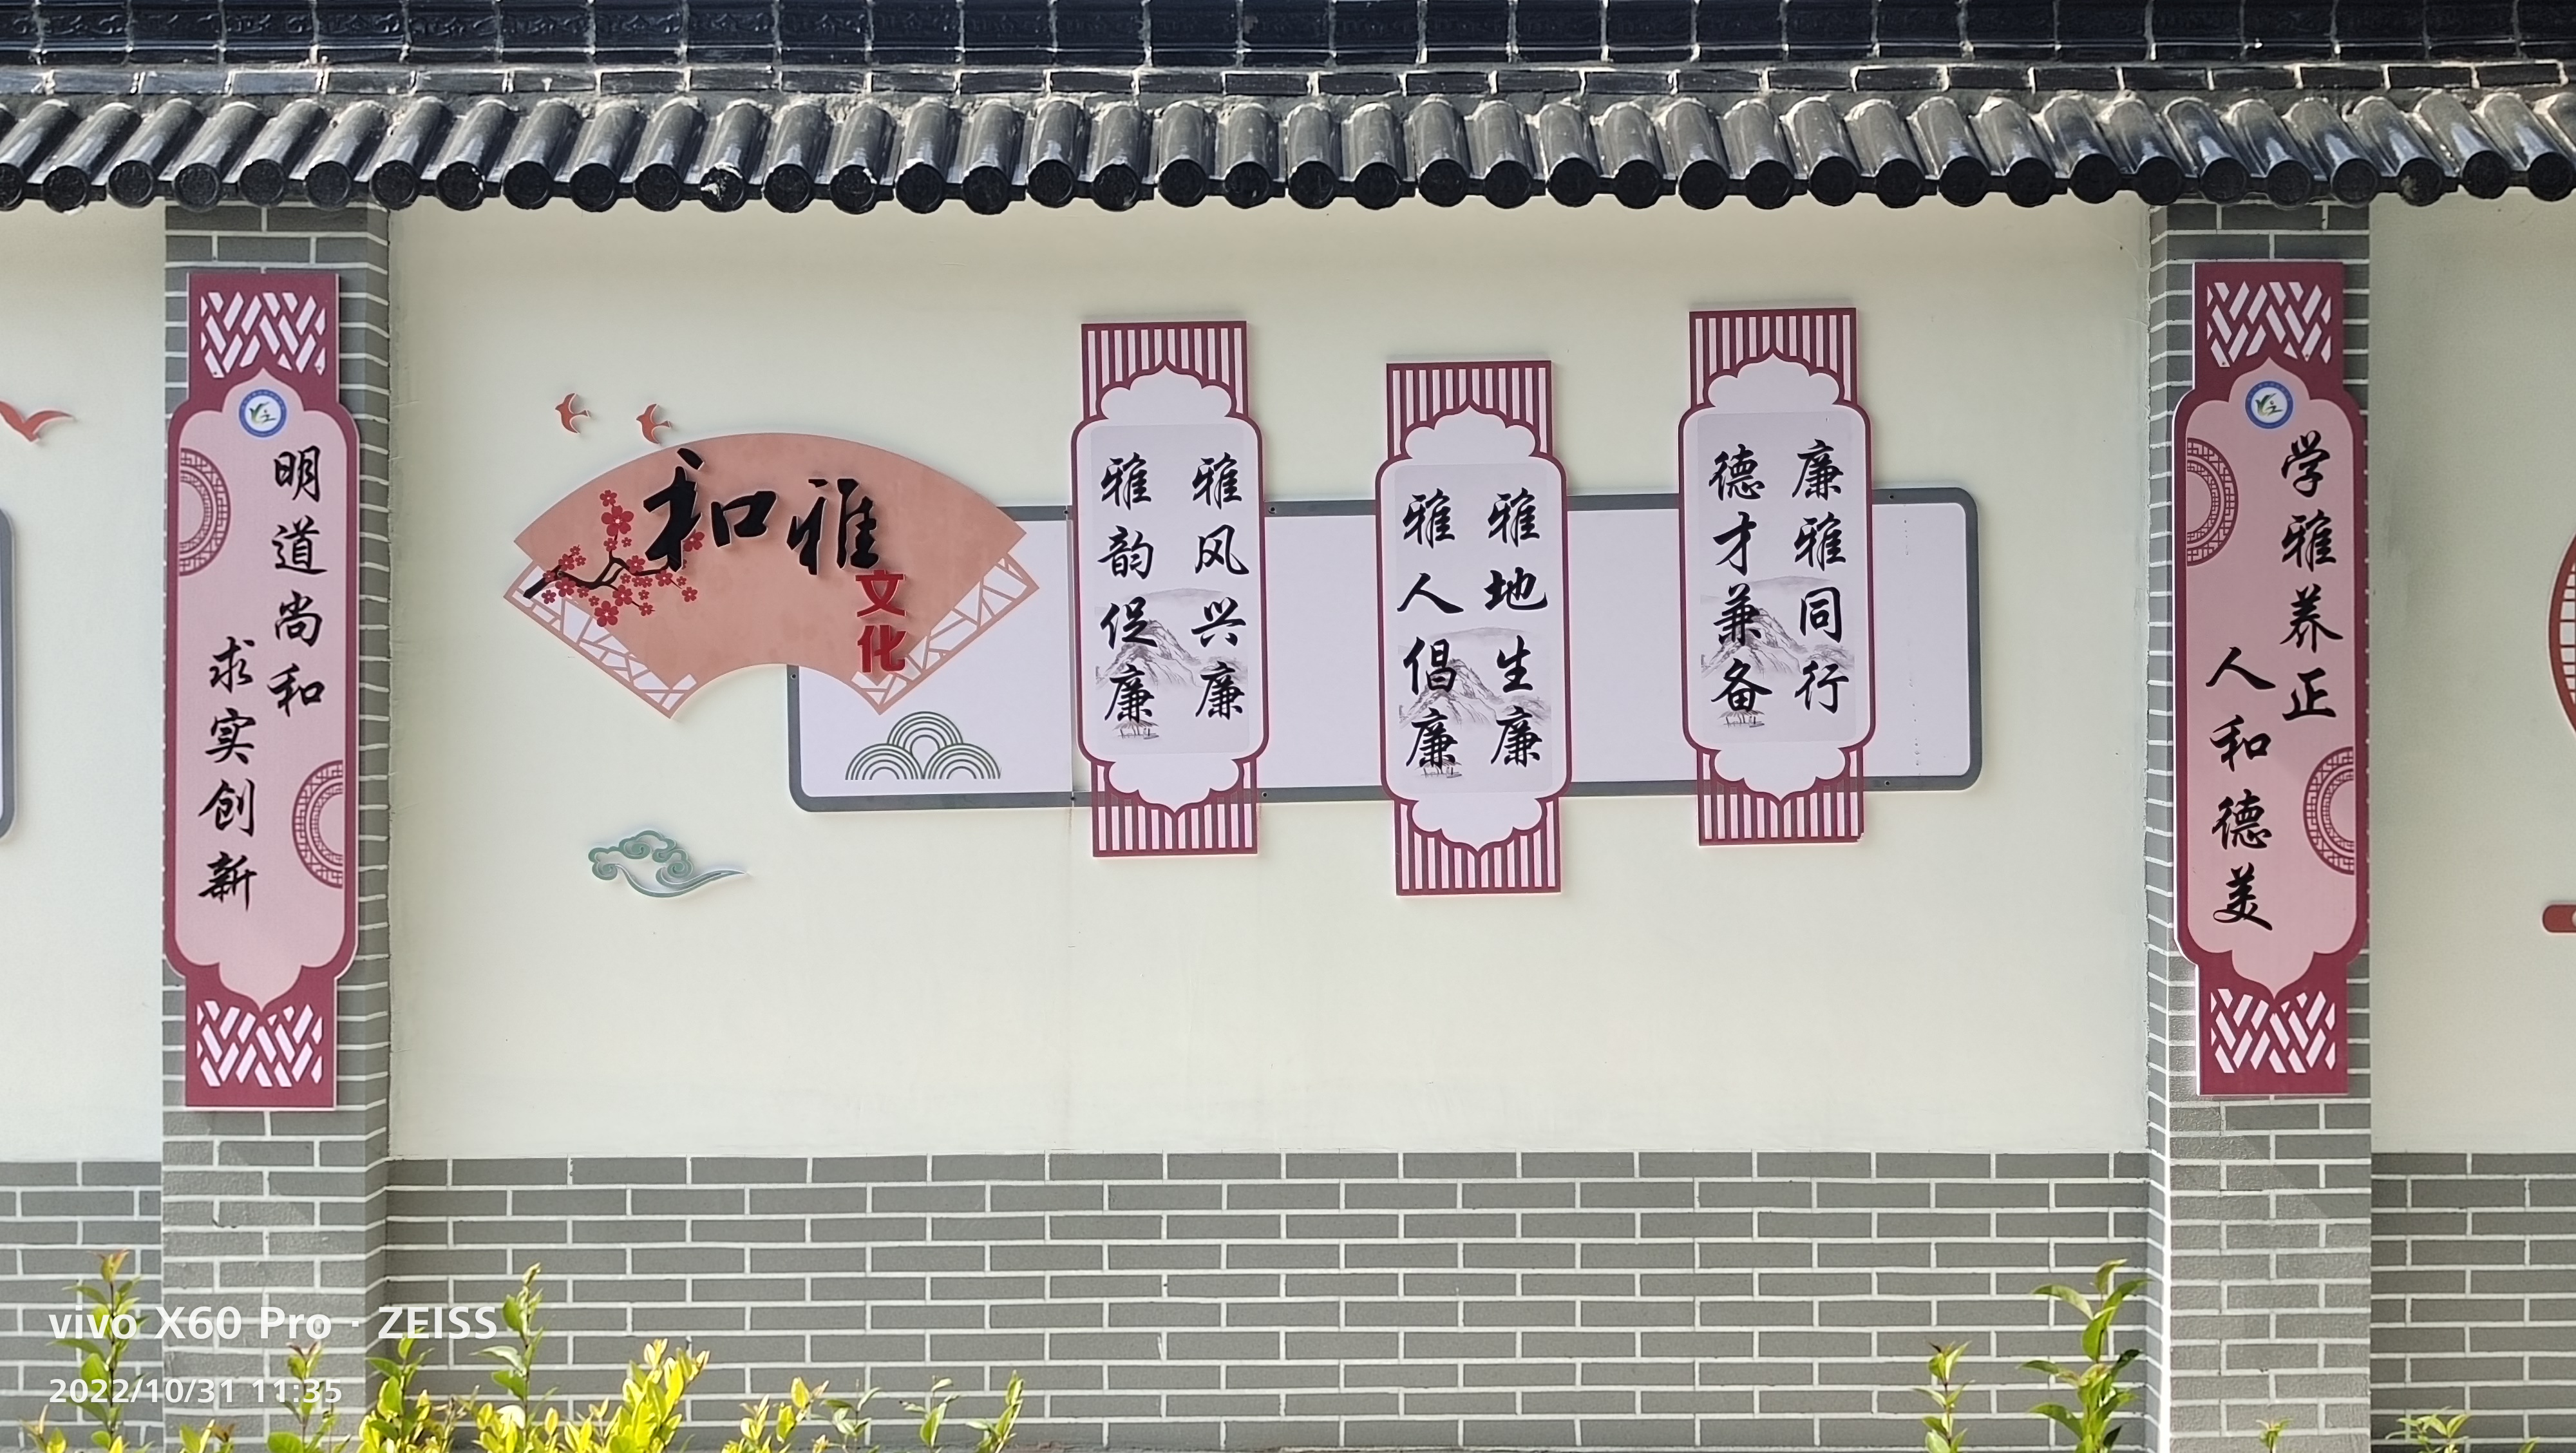 明道尚和
求实创新
和雅
文化
雅风兴廉
雅韵促廉
雅地生廉
雅人倡廉
廉雅同行
德才兼备
学雅养正
人和德美
vivo X60 Pro · ZEISS
2022/10/31 11:35